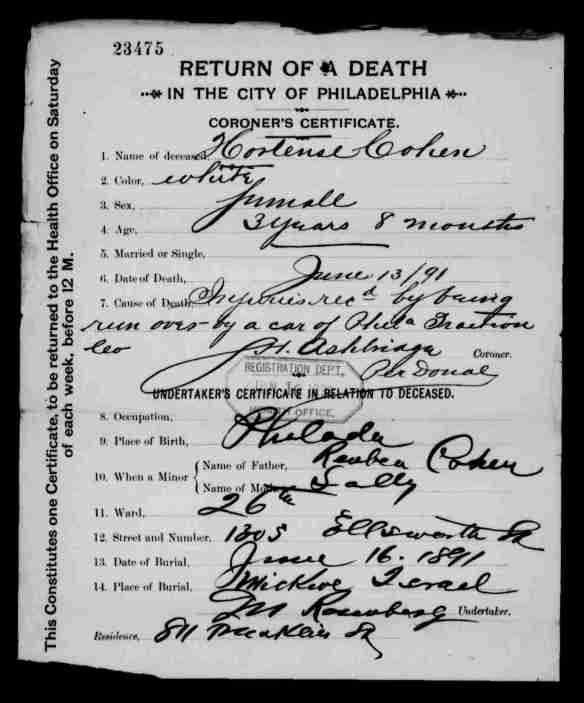 23475
RETURN OF A DEATH
IN THE CITY OF PHILADELPHIA
CORONER'S CERTIFICATE.
1. Name of deceased, Hortense Cohen
2. Color, white
3. Sex, femall
4. Age, 3 years 8 months
5. Married or Single,
6. Date of Death, June 13/91
7. Cause of Death, Injuries rec'd by being
run over by a car of Phila Traction
Co
S. H. Ashbridge Coroner.
Per Donal
REGISTRATION DEPT.
JUN 16
HEALTH OFFICE.
UNDERTAKER'S CERTIFICATE IN RELATION TO DECEASED.
8. Occupation,
9. Place of Birth, Philada
10. When a Minor
Name of Father, Reuben Cohen
Name of Mother Sally
11. Ward, 26th
12. Street and Number, 1305 Ellsworth St
13. Date of Burial, June 16. 1891
14. Place of Burial, Mickve Israel
JM Rosenberg Undertaker.
Residence, 811 Franklin St
This Constitutes one Certificate, to be returned to the Health Office on Saturday
of each week, before 12 M.